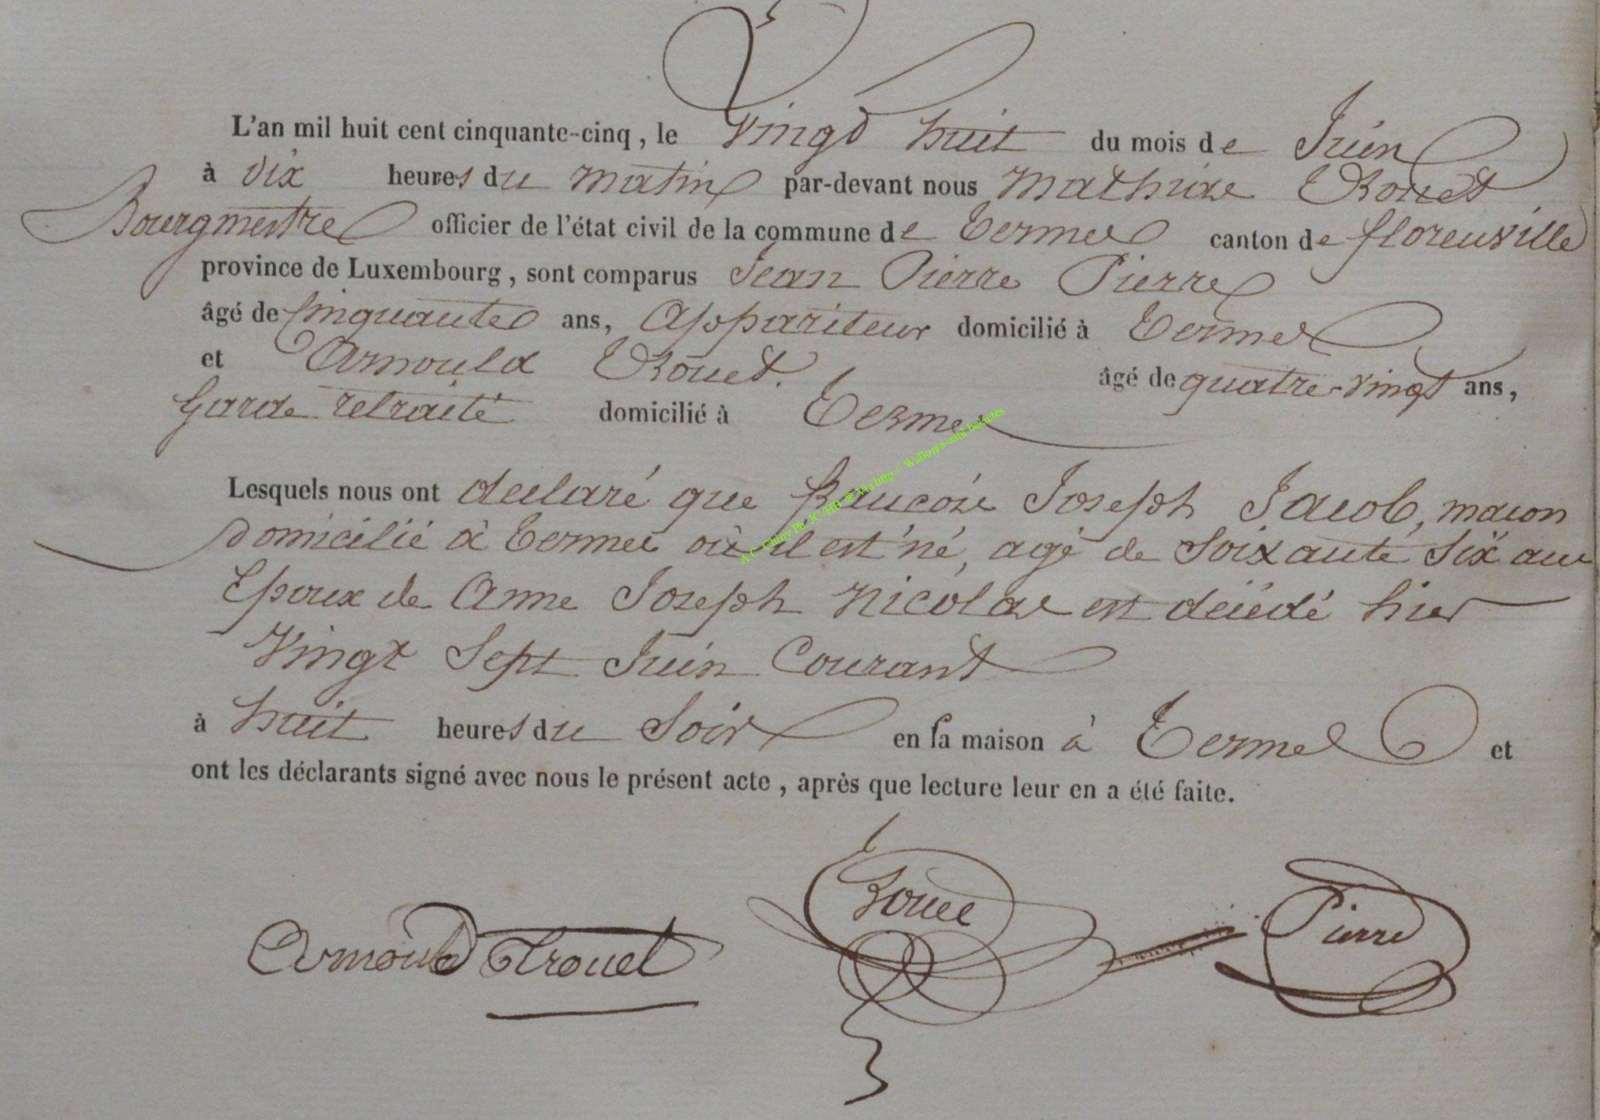 L'an mil huit cent cinquante-cinq, le Vingt huit du mois de Juin
à dix heures du matin par-devant nous Mathieu Trouet
Bourgmestre officier de l'état civil de la commune de Termes canton de florenville
province de Luxembourg, sont comparus Jean Pierre Pierre
âgé de Cinquante ans, Appariteur domicilié à Termes
et Arnould Trouet. âgé de quatre-vingt ans,
Garde retraité domicilié à Termes
Lesquels nous ont declaré que françois Joseph Jacob, macon
domicilié à Termes où il est né, agé de Soixante Six ans
Epoux de Anne Joseph Nicolas est décédé hier
Vingt Sept Juin Courant
à huit heures du Soir en sa maison à Termes et
ont les déclarants signé avec nous le présent acte, après que lecture leur en a été faite.
Arnould Trouet Pierre